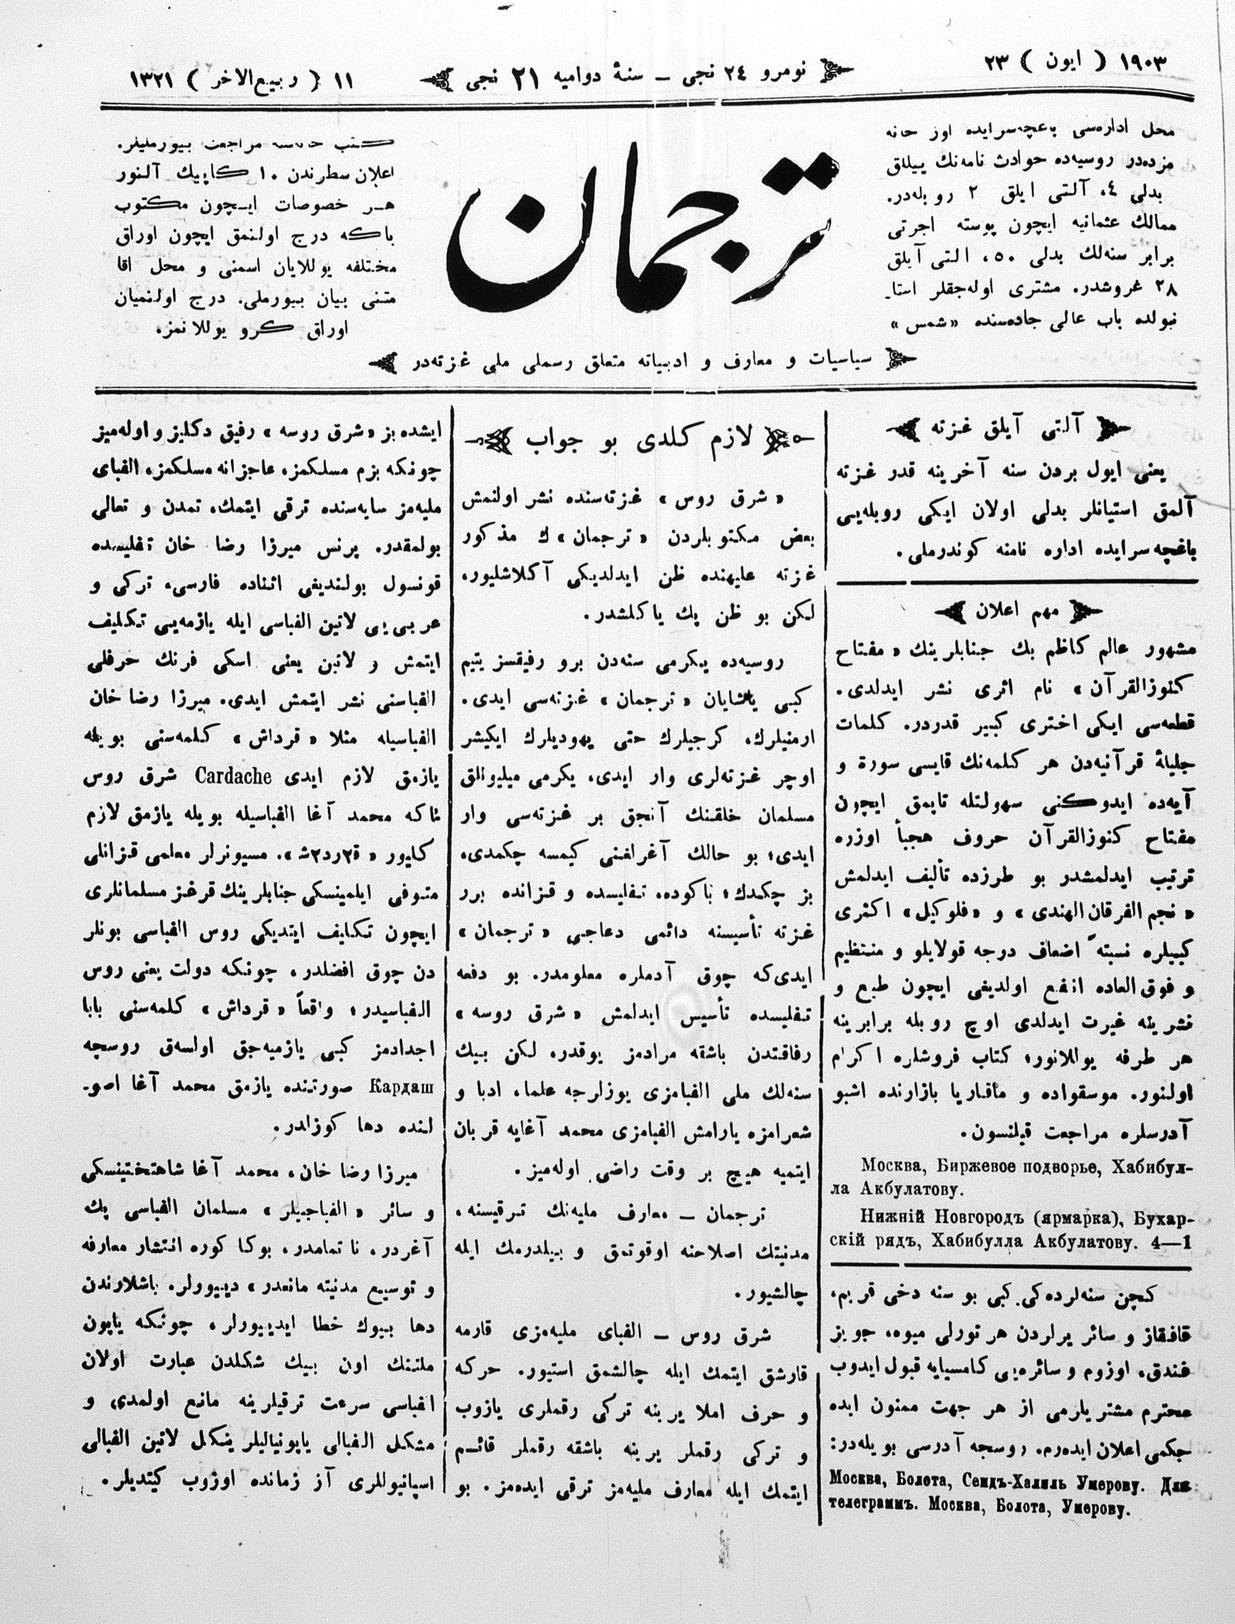 ١٩٠٣ ( ایون ) ٢٣
نومرو ٢٤ نجی ــ سنهٔ دوامیه ٢١ نجی
١١ ( ربیع الاخر ) ١٣٢١
محل اداره‌سی باغچه‌سرایده اوز خانه
مزده‌در روسیه‌ده حوادث نامه‌نك ییللق
بدلی ٤، آلتی ایلق ٢ روبله‌در.
ممالك عثمانیه ایچون پوسته اجرتی
برابر سنه‌لك بدلی ٥٠، التی آیلق
٢٨ غروشدر. مشتری اوله‌جقلر استا‌ـ
نبولده باب عالی جاده‌سنده «شمس»
ترجمان
كتب خانه‌سنه مراجعت بیورملیلر.
اعلان سطرندن ١٠ كاپیك آلنور
هر خصوصات ایچون مكتوب
باكه درج اولنمق ایچون اوراق
مختلفه یوللایان اسمنی و محل اقا
متنی بیان بیورملی. درج اولنمیان
اوراق كرو یوللانمز.
سیاسیات و معارف و ادبیاته متعلق رسملی ملی غزته‌در
آلتی آیلق غزته
یعنی ایول بردن سنه آخرینه قدر غزته
آلمق استیانلر بدلی اولان ایكی روبله‌یی
باغچه‌سرایده اداره نامنه كوندرملی.
مهم اعلان
مشهور عالم كاظم بك جنابلرینك «مفتاح
كنوزالقرآن» نام اثری نشر ایدلدی.
قطعه‌سی ایكی اختری كبیر قدردر. كلمات
جلیلهٔ قرآنیه‌دن هر كلمه‌نك قایسی سورة و
آیه‌ده ایدوكنی سهولتله تاپمق ایچون
مفتاح كنوزالقرآن حروف هجأ اوزره
ترتیب ایدلمشدر بو طرزده تألیف ایدلمش
«نجم الفرقان الهندی» و «فلوكیل» اكثری
كبیلره نسبتهً اضعاف درجه قولایلو و منتظیم
و فوق العاده انفع اولدیغی ایچون طبع و
نشرینه غیرت ایدلدی اوچ روبله برابرینه
هر طرفه یوللانور؛ كتاب فروشلره اكرام
اولنور. موسقواده و ماقاریا بازارنده اشبو
آدرسلره مراجعت قیلنسون.
Москва, Биржевое подворье, Хабибул-
ла Акбулатову.
Нижній Новгородъ (ярмарка), Бухар-
скій рядъ, Хабибулла Акбулатову. 4—1
كچن سنه‌لرده‌كی كبی بو سنه دخی قریم،
قافقاز و سائر یرلردن هر تورلی میوه، جویز
فندق، اوزوم و سائره‌یی كامسیایه قبول ایدوب
محترم مشتریلرمی از هر جهت ممنون ایده
جكمی اعلان ایده‌رم. روسجه آدرسی بویله‌در:
Москва, Болота, Сеидъ-Халиль Умерову. Для
телеграммъ. Москва, Болота, Умерову.
لازم كلدی بو جواب
«شرق روس» غزته‌سنده نشر اولنمش
بعض مكتوبلردن «ترجمان»ك مذكور
غزته علیهنده ظن ایدلدیكی آكلاشلیور،
لكن بو ظن پك یاكلشدر.
روسیه‌ده یكرمی سنه‌دن برو رفیقسز یتیم
كبی یاشایان «ترجمان» غزته‌سی ایدی.
ارمنیلرك، كرجیلرك حتی یهودیلرك ایكیشر
اوچر غزته‌لری وار ایدی، یكرمی میلیونلق
مسلمان خلقنك آنجق بر غزته‌سی وار
ایدی؛ بو حالك آغرلغنی كیمسه چكمدی،
بز چكدك؛ باكوده، تفلیسده و قزانده برر
غزته تأسیسنه دائمی دعاجی «ترجمان»
ایدی‌كه چوق آدملره معلومدر. بو دفعه
تفلیسده تأسیس ایدلمش «شرق روسه»
رفاقتدن باشقه مرادمز یوقدر، لكن بیك
سنه‌لك ملی الفبامزی یوزلرجه علماء، ادبا و
شعرامزه یارامش الفبامزی محمد آغایه قربان
ایتمیه هیچ بر وقت راضی اوله‌میز.
ترجمان ــ معارف ملیه‌نك ترقیسنه،
مدنیتك اصلاحنه اوقوتمق و بیلدرمك ایله
چالشیور.
شرق روس ــ الفبای ملیه‌مزی قارمه
قارشق ایتمك ایله چالشمق استیور. حركه
و حرف املا یرینه تركی رقملری یازوب
و تركی رقملر یرینه باشقه رقملر قائم
ایتمك ایله معارف ملیه‌مز ترقی ایده‌مز. بو
ایشده بز «شرق روسه» رفیق دكلیز و اوله‌میز
چونكه بزم مسلكمز، عاجزانه مسلكمز، الفبای
ملیه‌مز سایه‌سنده ترقی ایتمك، تمدن و تعالی
بولمقدر. پرنس میرزا رضا خان تفلیسده
قونسول بولندیغی اثناده فارسی، تركی و
عربی‌یی لاتین الفباسی ایله یازمه‌یی تكلیف
ایتمش و لاتین یعنی اسكی فرنك حرفلی
الفباسنی نشر ایتمش ایدی. میرزا رضا خان
الفباسیله مثلا «قرداش» كلمه‌سنی بویله
یازمق لازم ایدی Cardache شرق روس
ثاكه محمد آغا الفباسیله بویله یازمق لازم
كلیور «٢ق٢رد٢ش». مسیونرلر معلمی قزانلی
متوفی ایلمینسكی جنابلرینك قرغز مسلمانلری
ایچون تكلیف ایتدیكی روس الفباسی بونلر
دن چوق افضلدر، چونكه دولت یعنی روس
الفباسیدر؛ واقعاً «قرداش» كلمه‌سنی بابا
اجدادمز كبی یازمیه‌جق اولسه‌ق روسچه
Кардаш صورتنده یازمق محمد آغا اصو‌ـ
لنده دها كوزلدر.
میرزا رضا خان، محمد آغا شاهتختینسكی
و سائر «الفباجیلر» مسلمان الفباسی پك
آغردر، ناتمامدر، بوكا كوره انتشار معارفه
و توسیع مدنیته مانعدر» دییورلر. باشلارندن
دها بیوك خطا ایدییورلر، چونكه یاپون
ملتنك اون بیك شكلدن عبارت اولان
الفباسی سرعت ترقیلرینه مانع اولمدی و
مشكل الفبالی یاپونیالیلر ینكل لاتین الفبالی
اسپانیوللری آز زمانده اوزوب كیتدیلر.